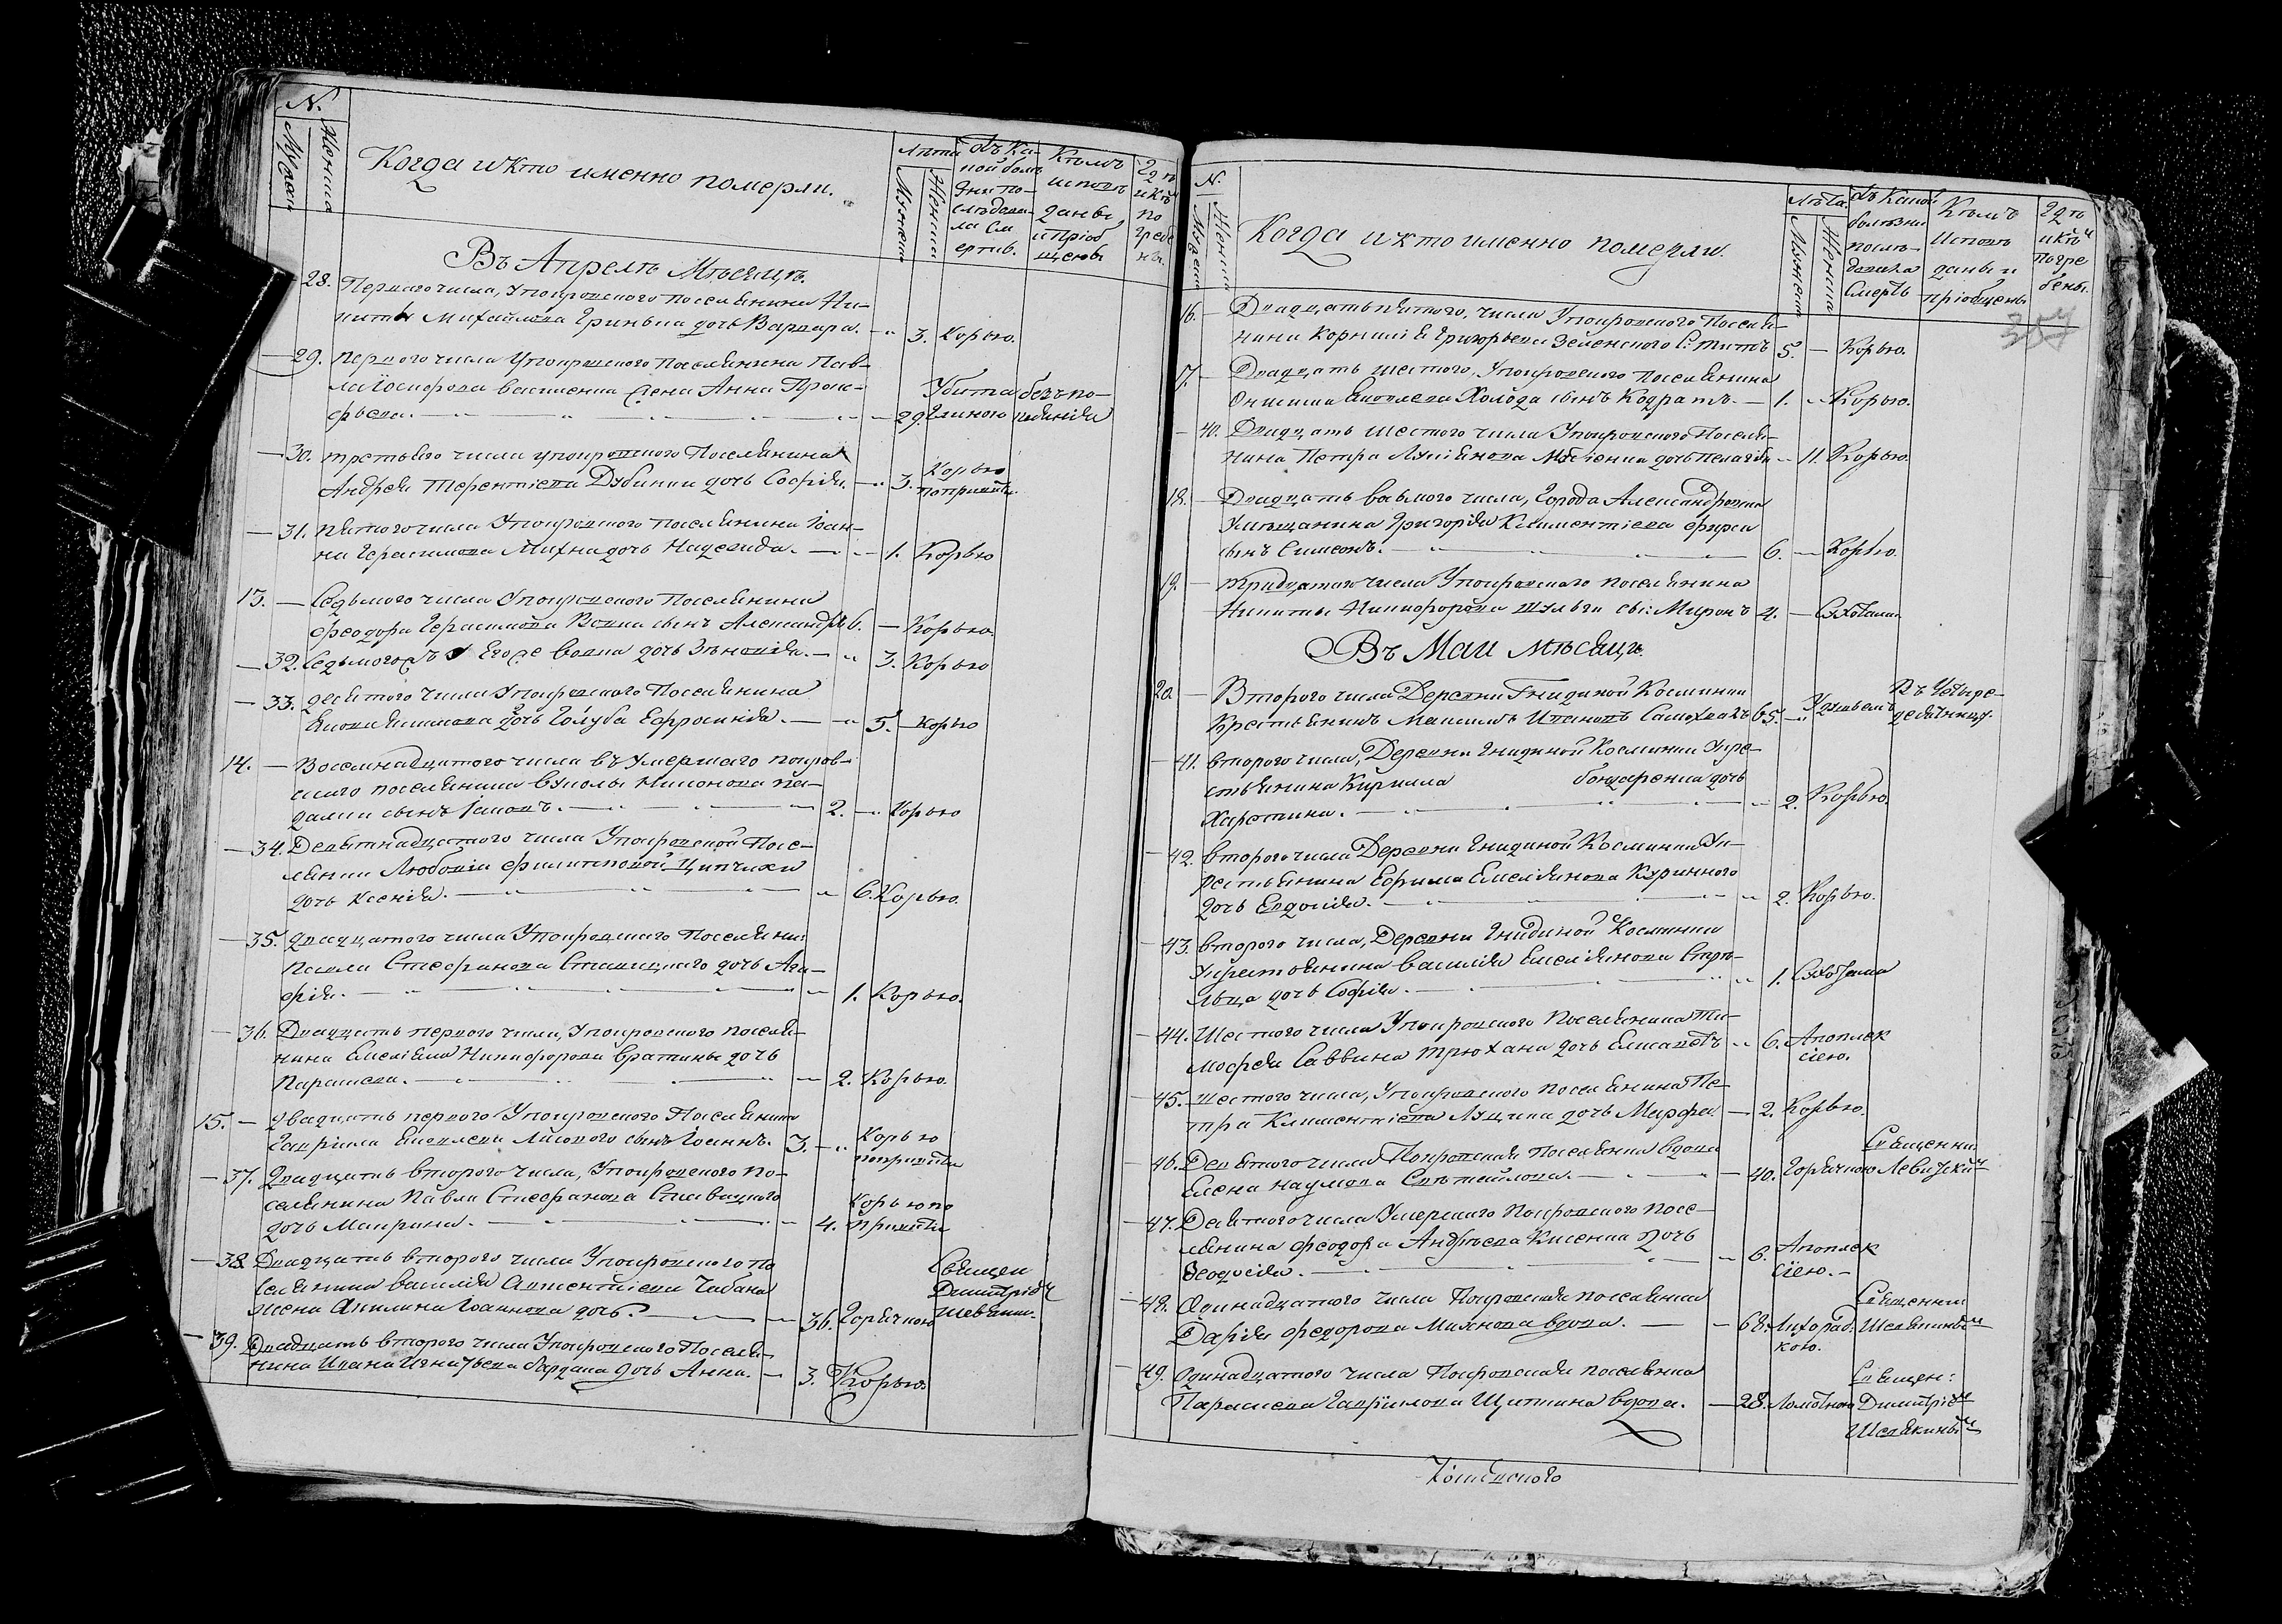 N.
Мужеск
Женска
Когда и кто именно померли.
Лѣта
Мужеск
Женска
Въ Ка-
кой болѣ
зни по-
слѣдова-
ла См
ертъ.
Кѣмъ
исповѣ
даны,
и Пріоб
щены
Гдѣ
и кѣ
по
гребе
ны.
Въ Апрелѣ Мѣсяцѣ.
28. Перваго числа, Упокровского поселянина Ни-
киты Михайлова Гринька дочь Варвара. 3. Корью.
29. Перваго числа Упокровского Поселянина Пав-
ла Іосифова Василенка жена Анна Проко-
фьева. 29. Убита Глиною без по-
каянія
30. третьяго числа упокровского Поселянина
Андрея Терентіева Дубинки дочь Софія. 3. Корью
31. Пятого числа Упокровского поселянина Іоан-
на Герасимова Михна дочь Надежда. 1. Корью
13. Седьмого числа Упокровского Поселянина
Феодора Герасимова Вовка сынъ Александръ 6. Корью.
32. Седьмого Егоже Вовка дочь Зѣновія. 3. Корью
33. десятого числа Упокровского Поселянина
дочь Голуба Ефросинія. 5. Корью
14. Восемнадцатого числа въ умершаго покров-
ского поселянина Вуколы Никонова
сынъ Іаковъ. 2. Корью
34. Девятнадцатого числа Упокровской Посе-
лянки Любовіи Филиповой Ципчихи
дочь Ксенія. 6. Корью.
35. двадцатого числа Упокровского Поселяни:
Павла Стефанова Ставицкаго дочь Ага-
фія. 1. Корью.
36. Двадцать первого числа, Упокровского поселя-
нина Емеліана Никифорова Братины дочь
Параскева. 2. Корью.
15. Двадцать первого Упокровского Поселянина
Гавріила Яковлева Лисового сынъ Іоаннъ. 3. Корью
37. Двадцать второго числа, Упокровского по-
селянина Павла Стефанова Ставицкого
дочь Маврина. 4. Корью
38. Двадцать второго числа Упокровского По
селянина Василія Авксентіева Чабана
жена Акилина Іоаннова дочь. 36. Горячкою Священ
Димитрій
Шевякин.
39. Двадцать второго числа Упокровского Поселя-
нина Ивана Игнатьева Бардака дочь Анна. 3. Корью.
N.
Мужеска
Женска
Когда и кто именно померли.
Лѣта.
Мужеска
Женска
Въ Какой
болѣзни
послѣ-
довала
Смерть
Кѣмъ
Исповѣ
даны и
пріобщены
Гдѣ
и кѣ
Погре
бены.
16. Двадцать пятого, числа Упокровского Поселя-
нина Корнилія Григорьева Зеленского с: Титъ 5. Корью.
7. Двадцать шестого, Упокровского поселянина
Онисима Яковлева Холода сынъ Кодратъ. 1. Корью.
40. Двадцать шестого числа Упокровского Поселя-
нина Петра Лукіянова дочь Пелагія 11. Корью.
18. Двадцать восьмого числа, Города Александровска
Умещанина Григорія Климентіева Фурса
сынъ Симеонъ. 6. Корью.
19. тридцатого числа Упокровского поселянина
Никиты Никифорова Шульги сы: Миронъ 4. Сухотами
Въ Маи мѣсяцѣ.
20. Второго числа Деревни Гнидиной Космины
Крестьянинъ Максимъ Ивановъ Самохвалъ 65. Удушьемъ Въ Четыре-
десятницу.
41. второго числа, Деревни Гнидиной Космины Укре-
стьянина Кирилла бондаренка дочь
Харетина. 2. Корью.
42. второго числа Деревни Гнидиной Космины Ук-
рестьянина Ефима Емеліянова Куринного
дочь Евдокія. 2. Корью.
43 второго числа, Деревни Гнидиной Космины
Укрестьянина Василія Емеліянова Стрѣ-
льца дочь Софія. 1. Сухотами
44. Шестого числа Упокровского Поселянина Ти-
мофея Саввина Трюхана дочь Елисаветъ 6. Апоплек
сіею.
45. шестого числа, Упокровского поселянина Пе-
тра Климентіева Луцика дочь Марфа 2. Корью.
46. Девятого числа Покровская поселянка вдова
Елена Наумова Свѣтайлова. 40. Горячкою Священни
Левицкий
47. Девятого числа Умершаго Покровского посе-
лянина Феодора Андрѣева Кисенка дочь
Феодосія. 6. Апоплек
сіею.
48. Одинадцатого числа Покровская поселянка
Дарія Федорова Михнова вдова. 68. Лихорад:
кою. Священни
Шевякиным
49. Одинадцатого числа Покровская поселянка
Параскева Гавріилова Щиткина вдова. 28. Ломотною Священ:
Димитрій
Шевякиным